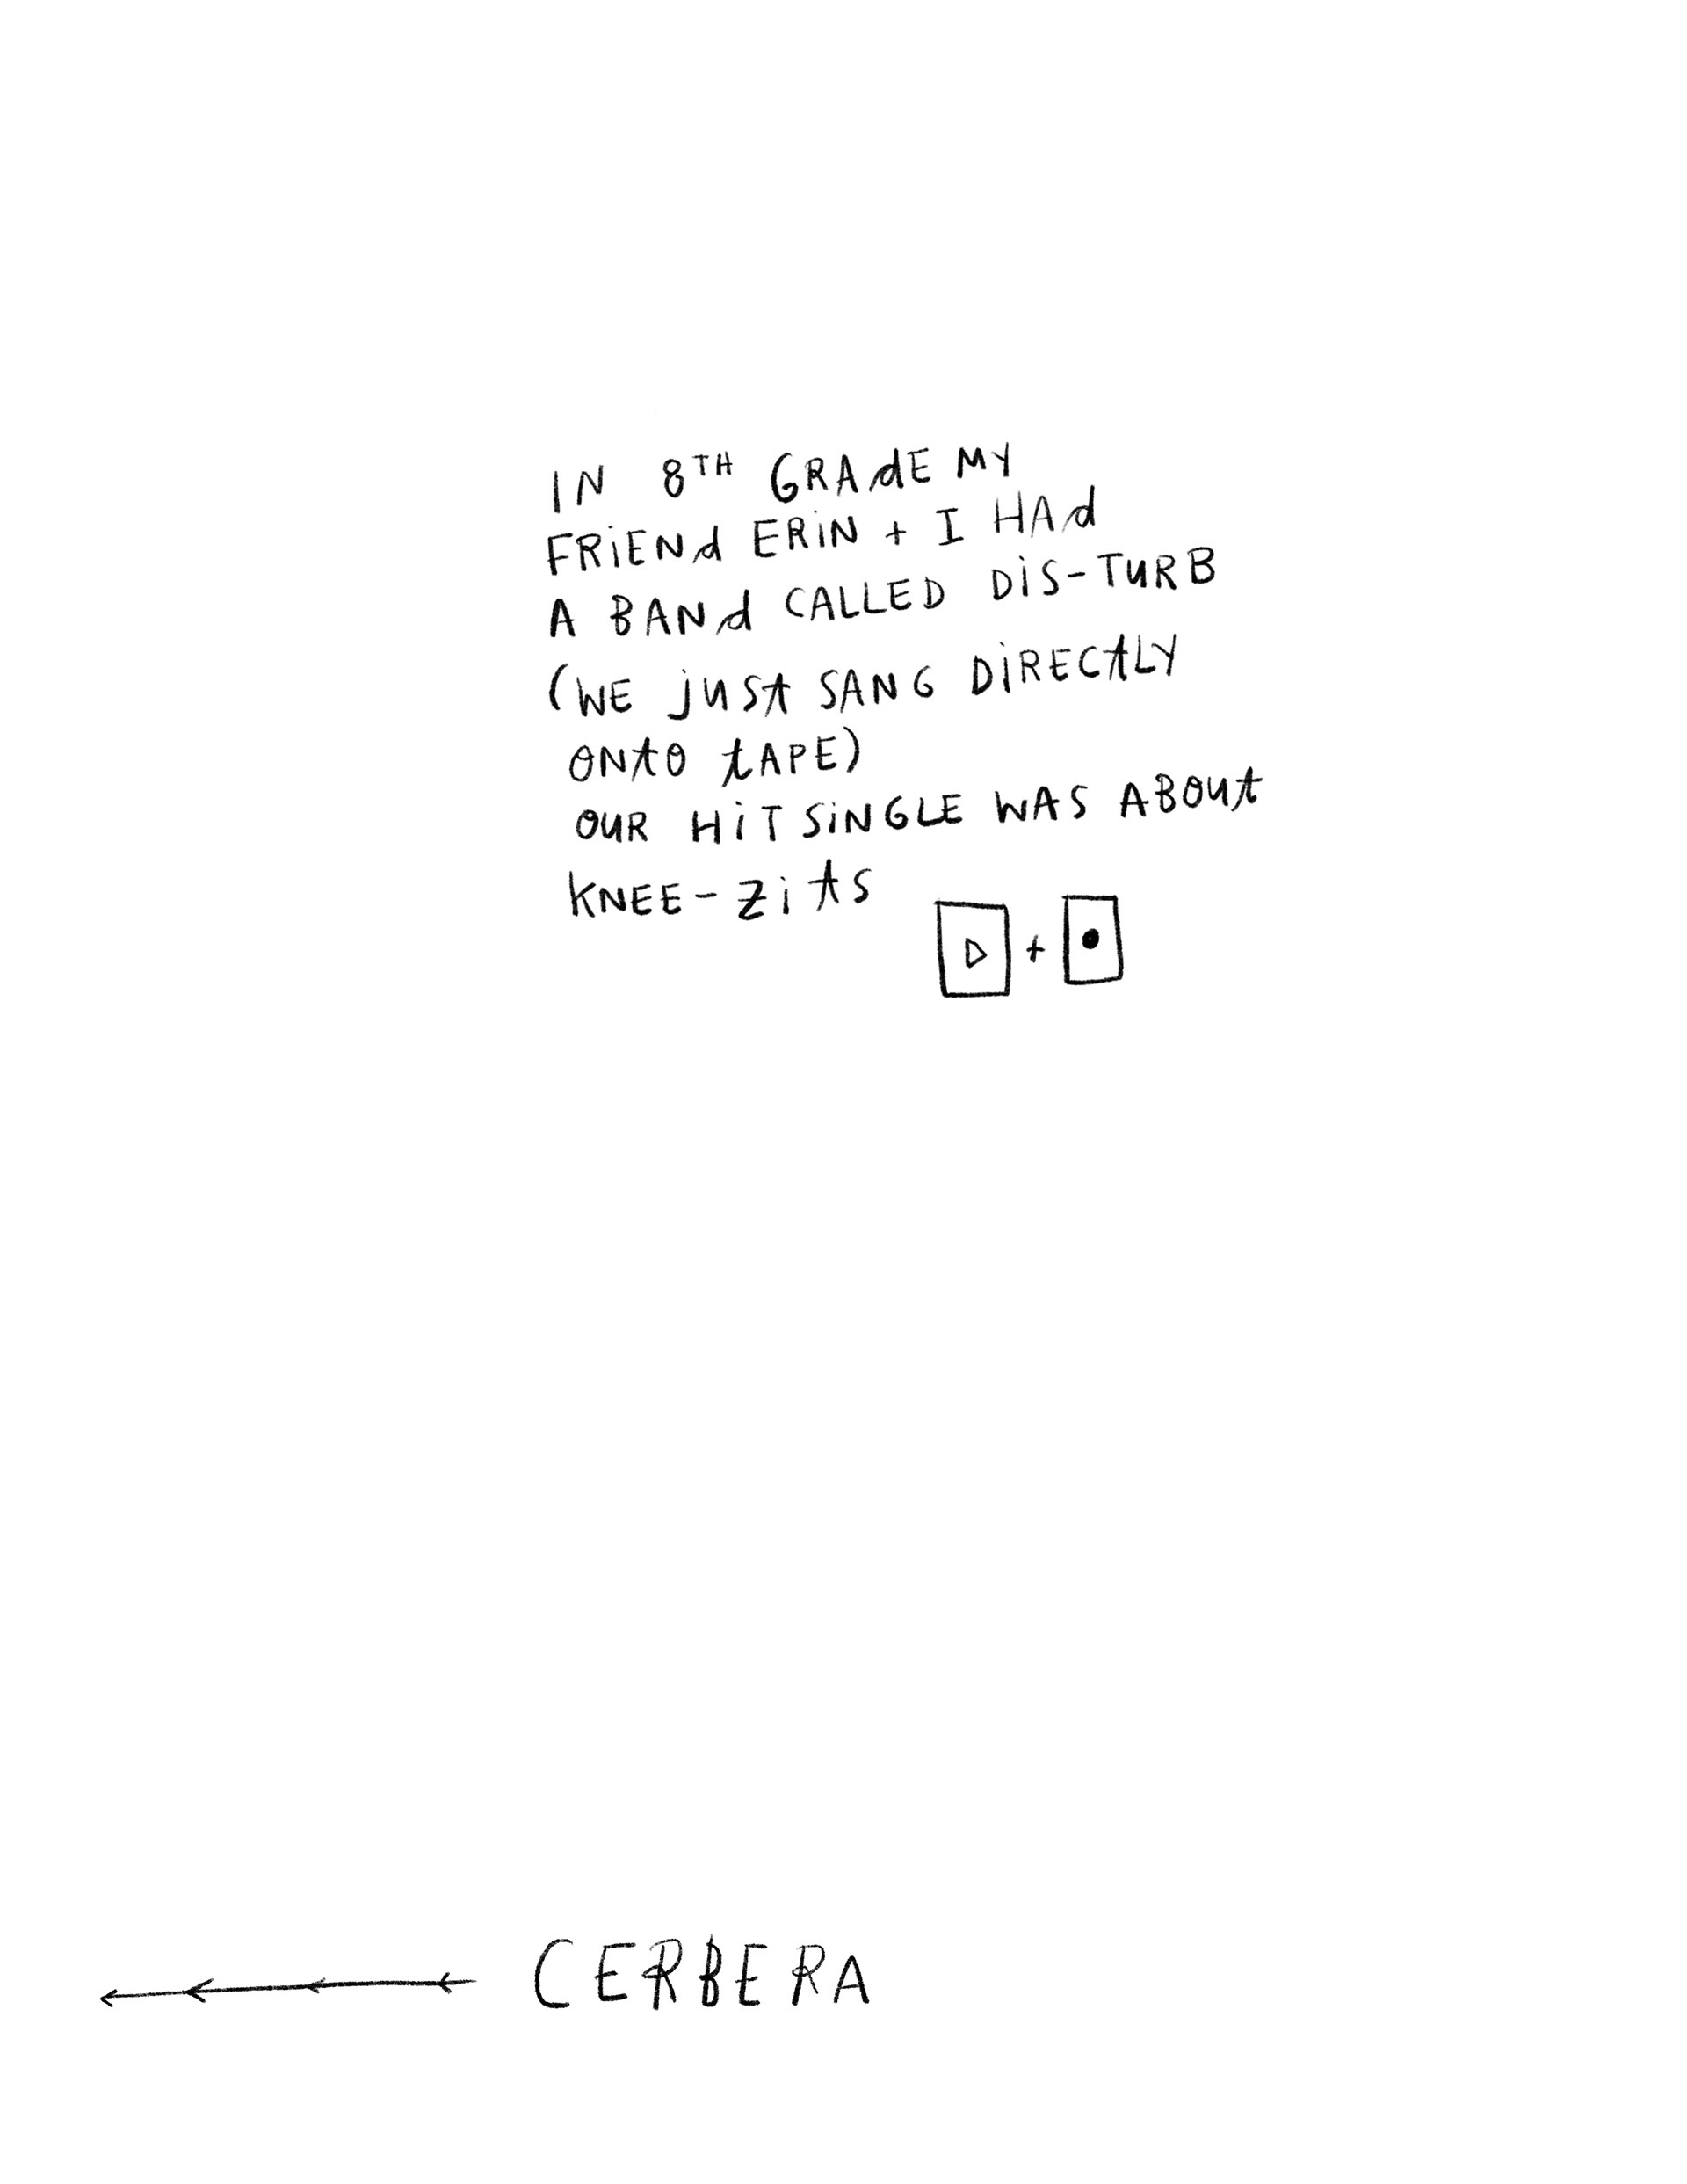 IN 8TH GRAdE MY
FRiENd ERiN + I HAd
A BANd CALLED DiS-TURB
(WE juSt SANG DiRECtLY
ONtO tAPE)
OUR HiT SiNGLE WAS ABOUt
KNEE-ZitS
+
CERBERA